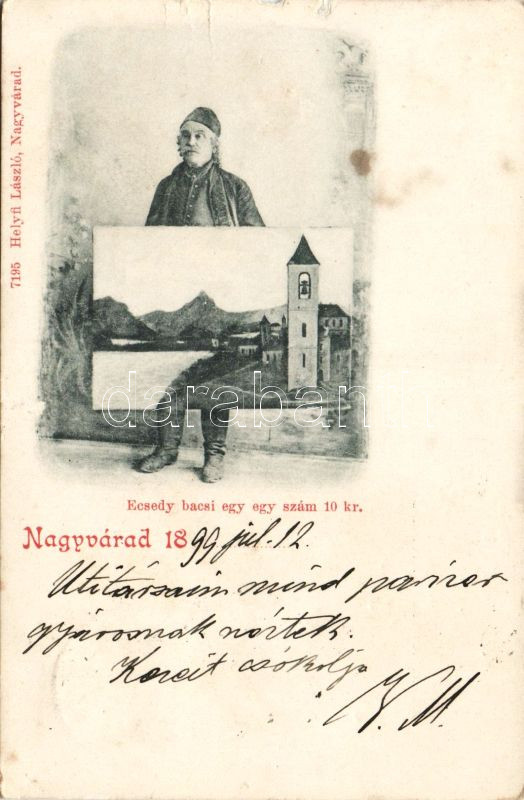 7195 Helyfi László, Nagyvárad.
darabanth
Ecsedy bacsi egy egy szám 10 kr.
Nagyvárad 1899 jul. 12.
Utitársaim mind
gyárosnak néztek.
Kezeit csókolja